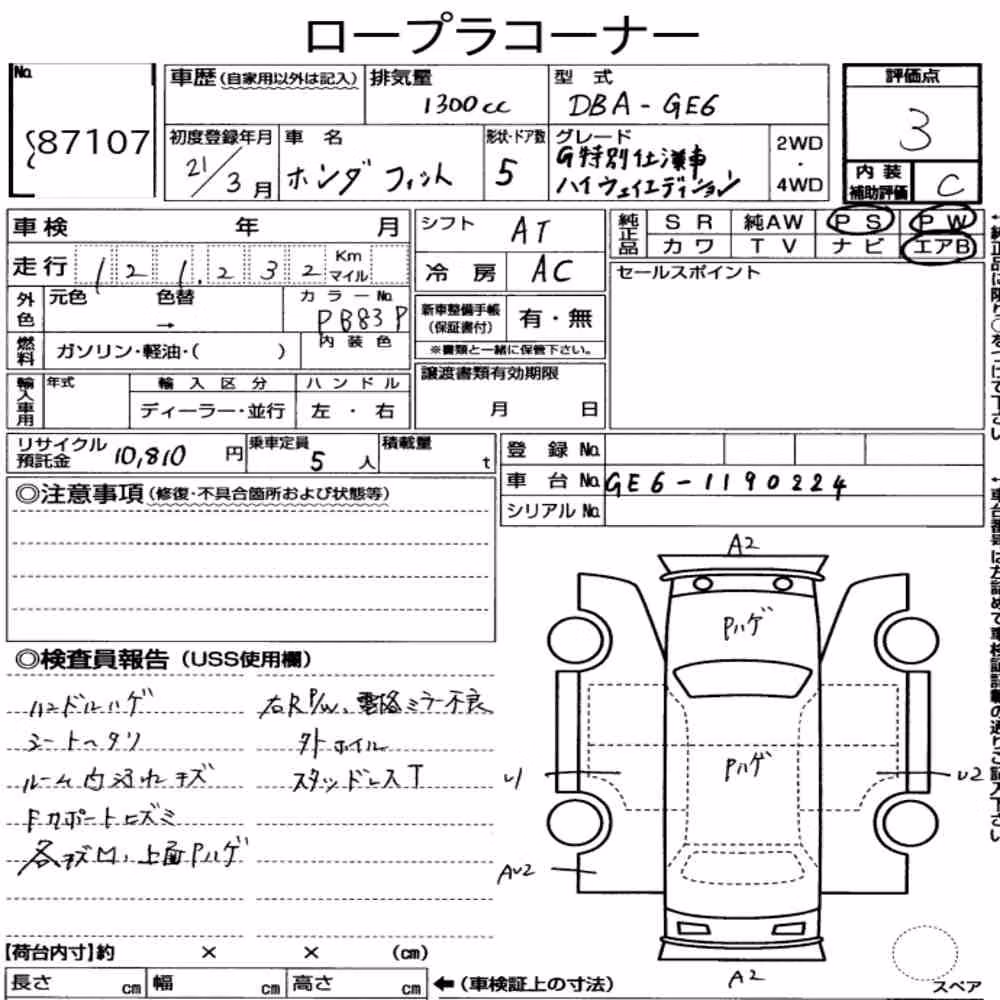 ロープラコーナー
No. 87107
車歴(自家用以外は記入)
排気量 1300cc
型式 DBA-GE6
評価点 3
初度登録年月 21/3月
車名 ホンダ フィット
形状・ドア数 5
グレード G特別仕様車
ハイウェイエディション
2WD・4WD
内装補助評価 C
車検 年 月
シフト AT
純正品 SR 純AW PS PW
カワ TV ナビ エアB
走行 121,232 Km マイル
冷房 AC
セールスポイント
外色 元色 色替 →
カラーNo. PB83P
新車整備手帳(保証書付) 有・無
※書類と一緒に保管下さい。
燃料 ガソリン・軽油・( )
内装色
譲渡書類有効期限
月 日
輸入車用 年式 輸入区分 ハンドル
ディーラー・並行 左・右
リサイクル預託金 10,810円
乗車定員 5人
積載量 t
登録No.
車台No. GE6-1190224
シリアルNo.
◎注意事項(修復・不具合箇所および状態等)
◎検査員報告(USS使用欄)
ハンドルハゲ
シートヘタリ
ルーム内汚れキズ
Fカポートヒズミ
各キズ凹、上面Pハゲ
右R P/W、電格ミラー不良
外ホイル
スタッドレスT
A2
Pハゲ
Pハゲ
U1
U2
AU2
A2
スペア
【荷台内寸】約 × × (cm)
長さ cm 幅 cm 高さ cm ←(車検証上の寸法)
←純正品に限り○をつけて下さい
←車台番号は左詰めで車検証記載の通りご記入下さい